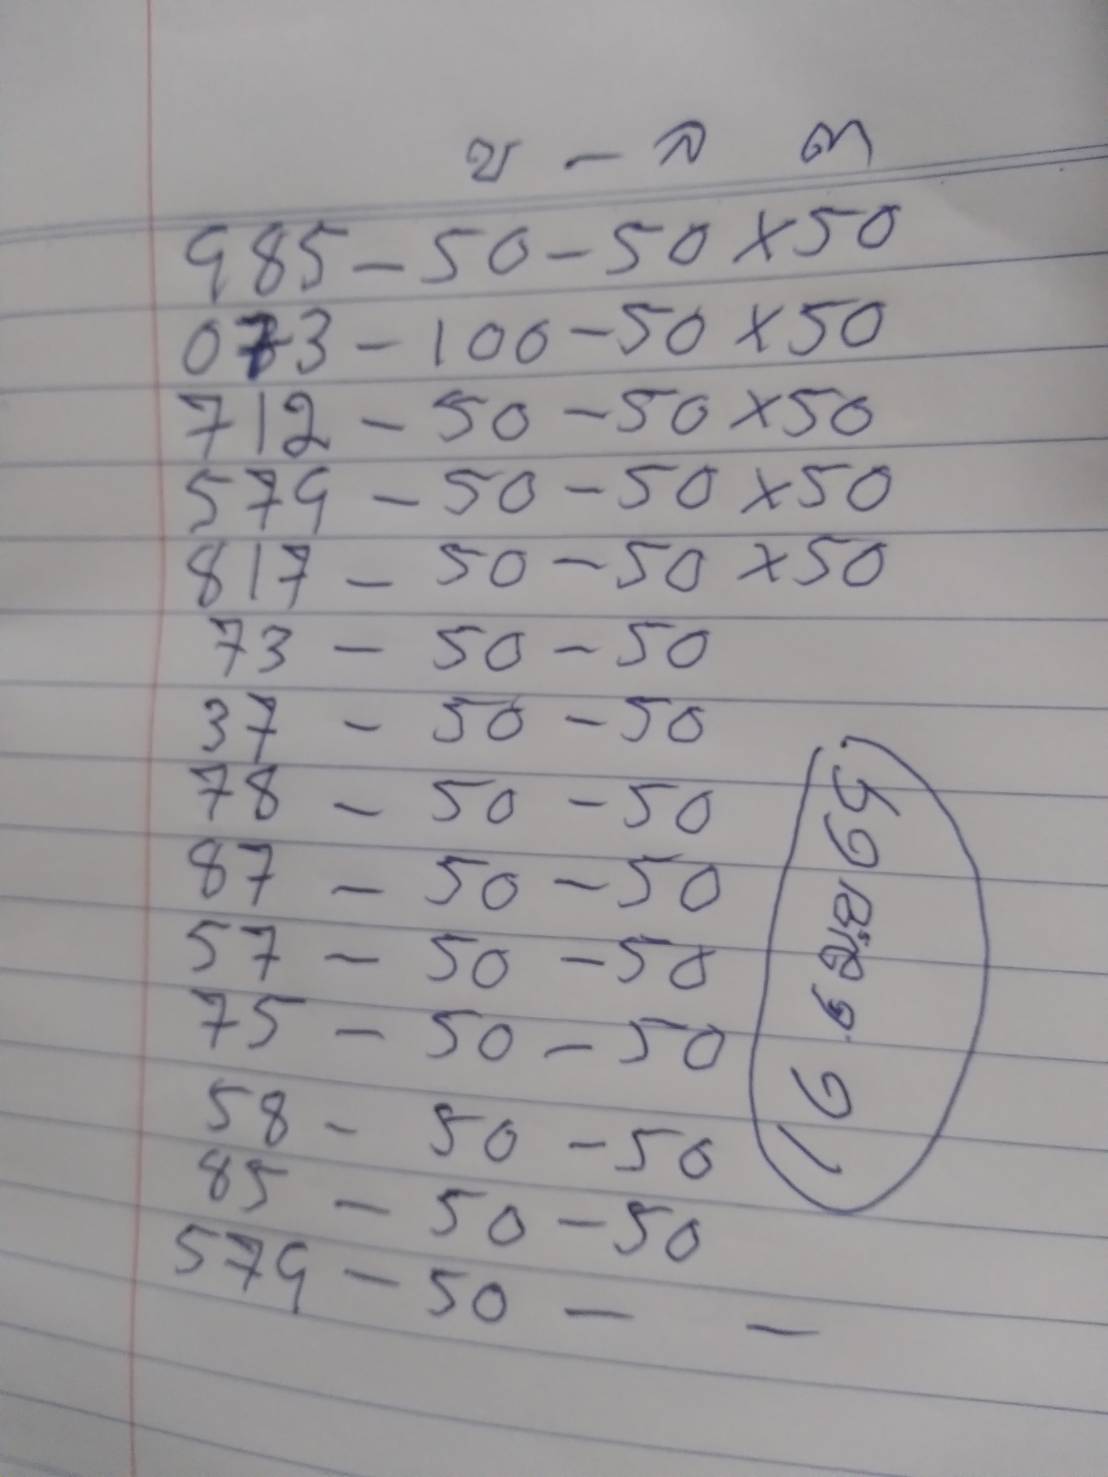 บ - ล ต
985 - 50 - 50 x 50
073 - 100 - 50 x 50
712 - 50 - 50 x 50
579 - 50 - 50 x 50
817 - 50 - 50 x 50
73 - 50 - 50
37 - 50 - 50
78 - 50 - 50
87 - 50 - 50
57 - 50 - 50
75 - 50 - 50
58 - 50 - 50
85 - 50 - 50
579 - 50 - -